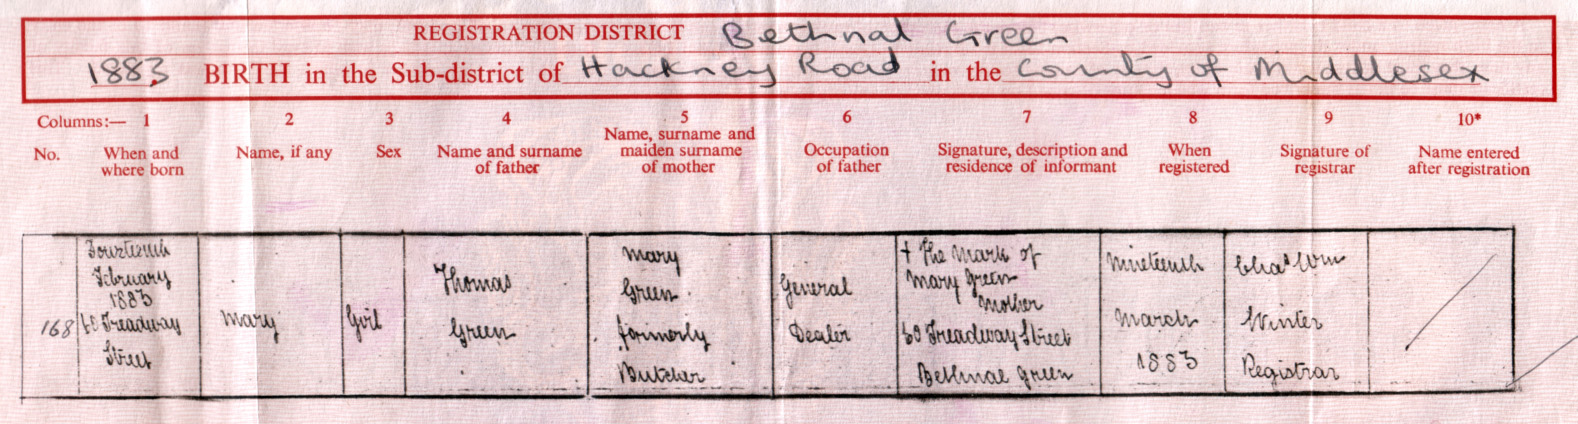 REGISTRATION DISTRICT Bethnal Green
1883 BIRTH in the Sub-district of Hackney Road in the County of Middlesex
Columns:— 1 2 3 4 5 6 7 8 9 10*
No.
When and
where born
Name, if any
Sex
Name and surname
of father
Name, surname and
maiden surname
of mother
Occupation
of father
Signature, description and
residence of informant
When
registered
Signature of
registrar
Name entered
after registration
168
Fourteenth
February
1883
60 Treadway
Street
Mary
Girl
Thomas
Green
Mary
Green
formerly
Butcher
General
Dealer
+ The mark of
Mary Green
Mother
60 Treadway Street
Bethnal Green
Nineteenth
March
1883
Chas Wm
Winter
Registrar